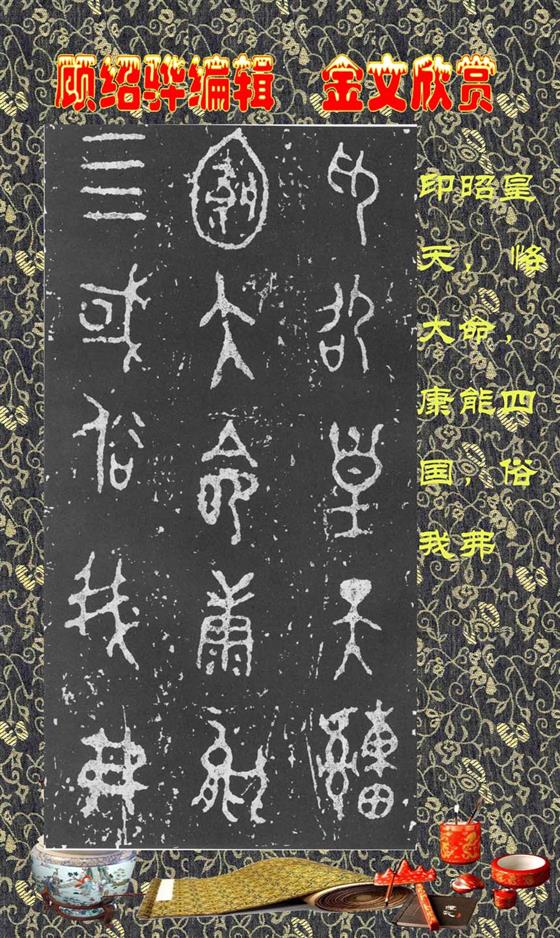 顾绍骅编辑 金文欣赏
卬卲皇天
大命康能
亖或俗我弗
印昭皇
天，恪
大命，
康能四
国，俗
我弗